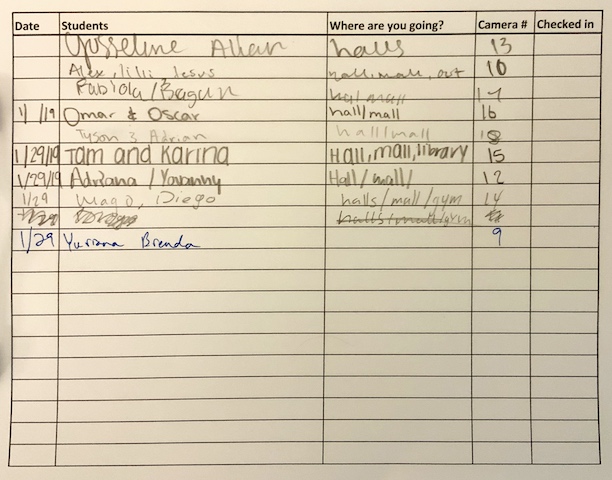 Date Students Where are you going? Camera # Checked in
Yosseline Allan halls 13
Alex, lili, Jesus hall, mall, out 10
Fabiola / hall mall 17
1/ /19 Omar & Oscar hall/mall 16
Tyson & Adrian hall/mall 18
1/29/19 Tam and Karina Hall, mall, library 15
1/29/19 Adriana / Yovanny Hall/mall/ 12
1/29 Mago, Diego halls/mall/gym 14
halls/mall/gym
1/29 Yuriana Brenda 9